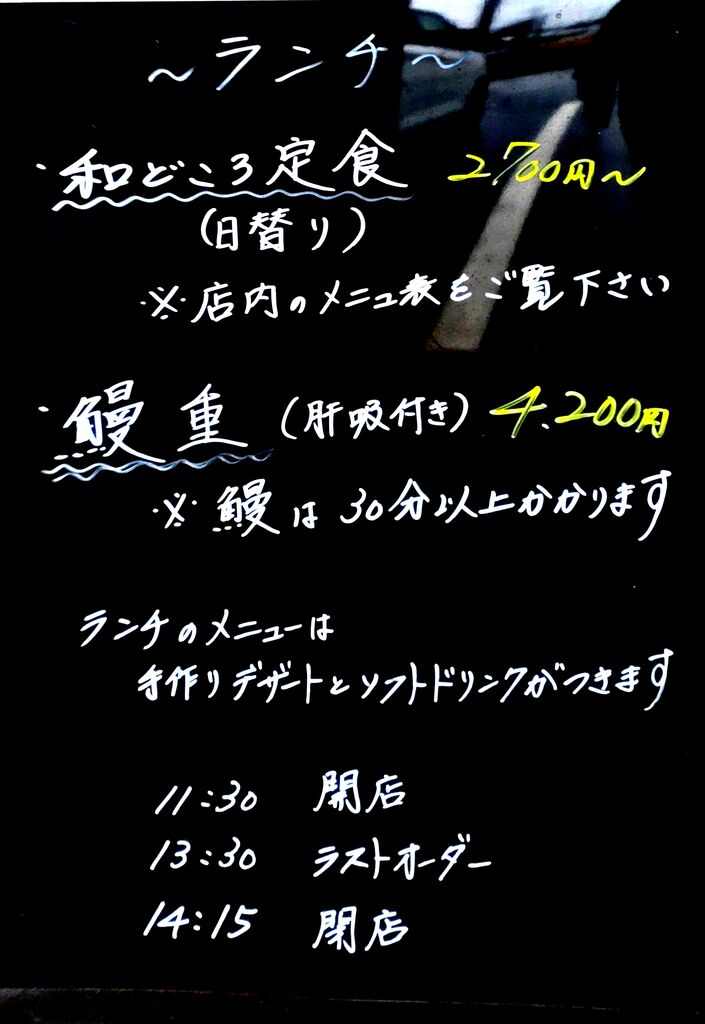 ～ランチ～
・和どころ定食 2.700円～
(日替り)
※店内のメニュー表をご覧下さい
・鰻重(肝吸付き) 4.200円
※鰻は30分以上かかります
ランチのメニューは
手作りデザートとソフトドリンクがつきます
11:30 開店
13:30 ラストオーダー
14:15 閉店